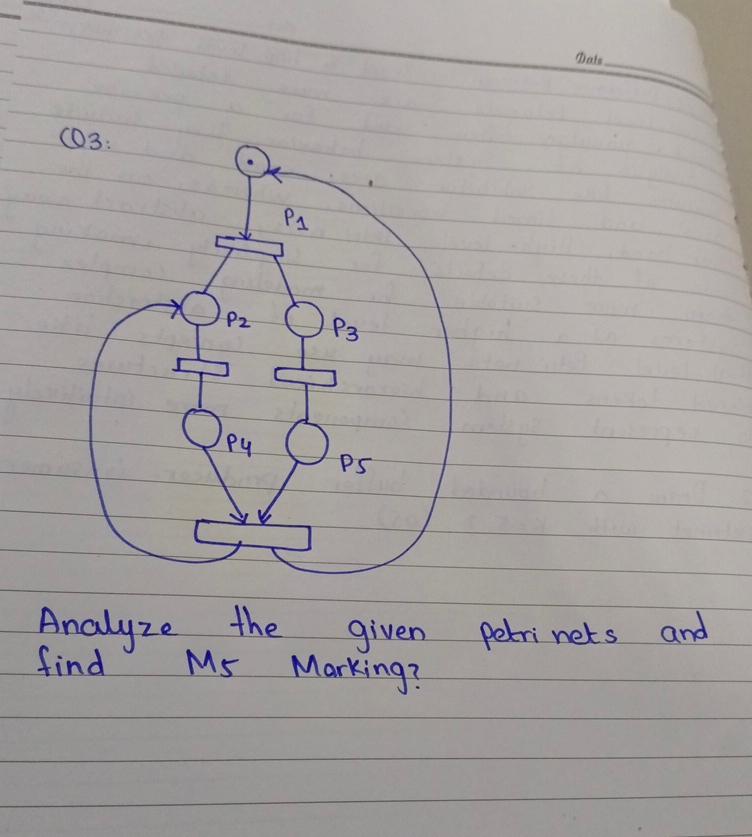 Date
CO3:
P1
P2
P3
P4
P5
Analyze the given petri nets and
find M5 Marking?